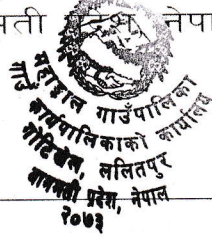 मती प्रदेश, नेपा
महाङ्काल गाउँपालिका
गाउँ कार्यपालिकाको कार्यालय
गोटिखेल, ललितपुर
बागमती प्रदेश, नेपाल
२०७३